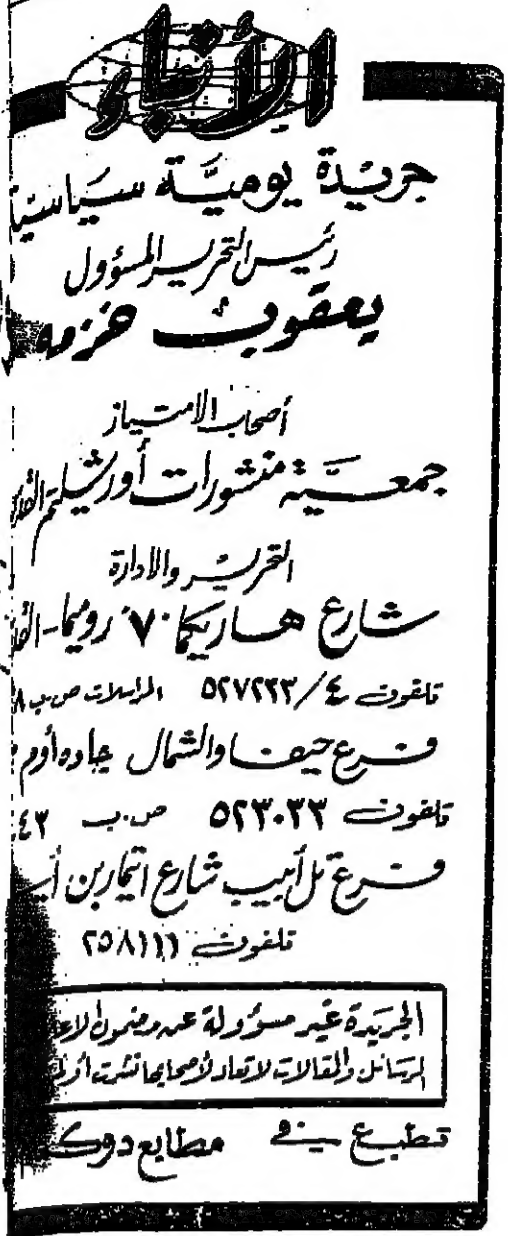 الأنباء
جريدة يوميّة سياسية
رئيس التحرير المسؤول
يعقوب خزمه
أصحاب الامتياز
جمعيّة منشورات أورشليم القدس
التحرير والادارة
شارع هاريكا ٧٠ روميما - القدس
تلفون ٥٢٧٢٣٣/٤ المراسلات ص.ب ٨
فرع حيفا والشمال جاده أوم
تلفون ٥٢٣٠٣٣ ص.ب ٤٣
فرع تل أبيب شارع ايتمار بن أب
تلفون ٢٥٨١١١
الجريدة غير مسؤولة عن مضمون الاع
الرسائل والمقالات لا تعاد لأصحابها نشرت أو لم
تطبع في مطابع دوك